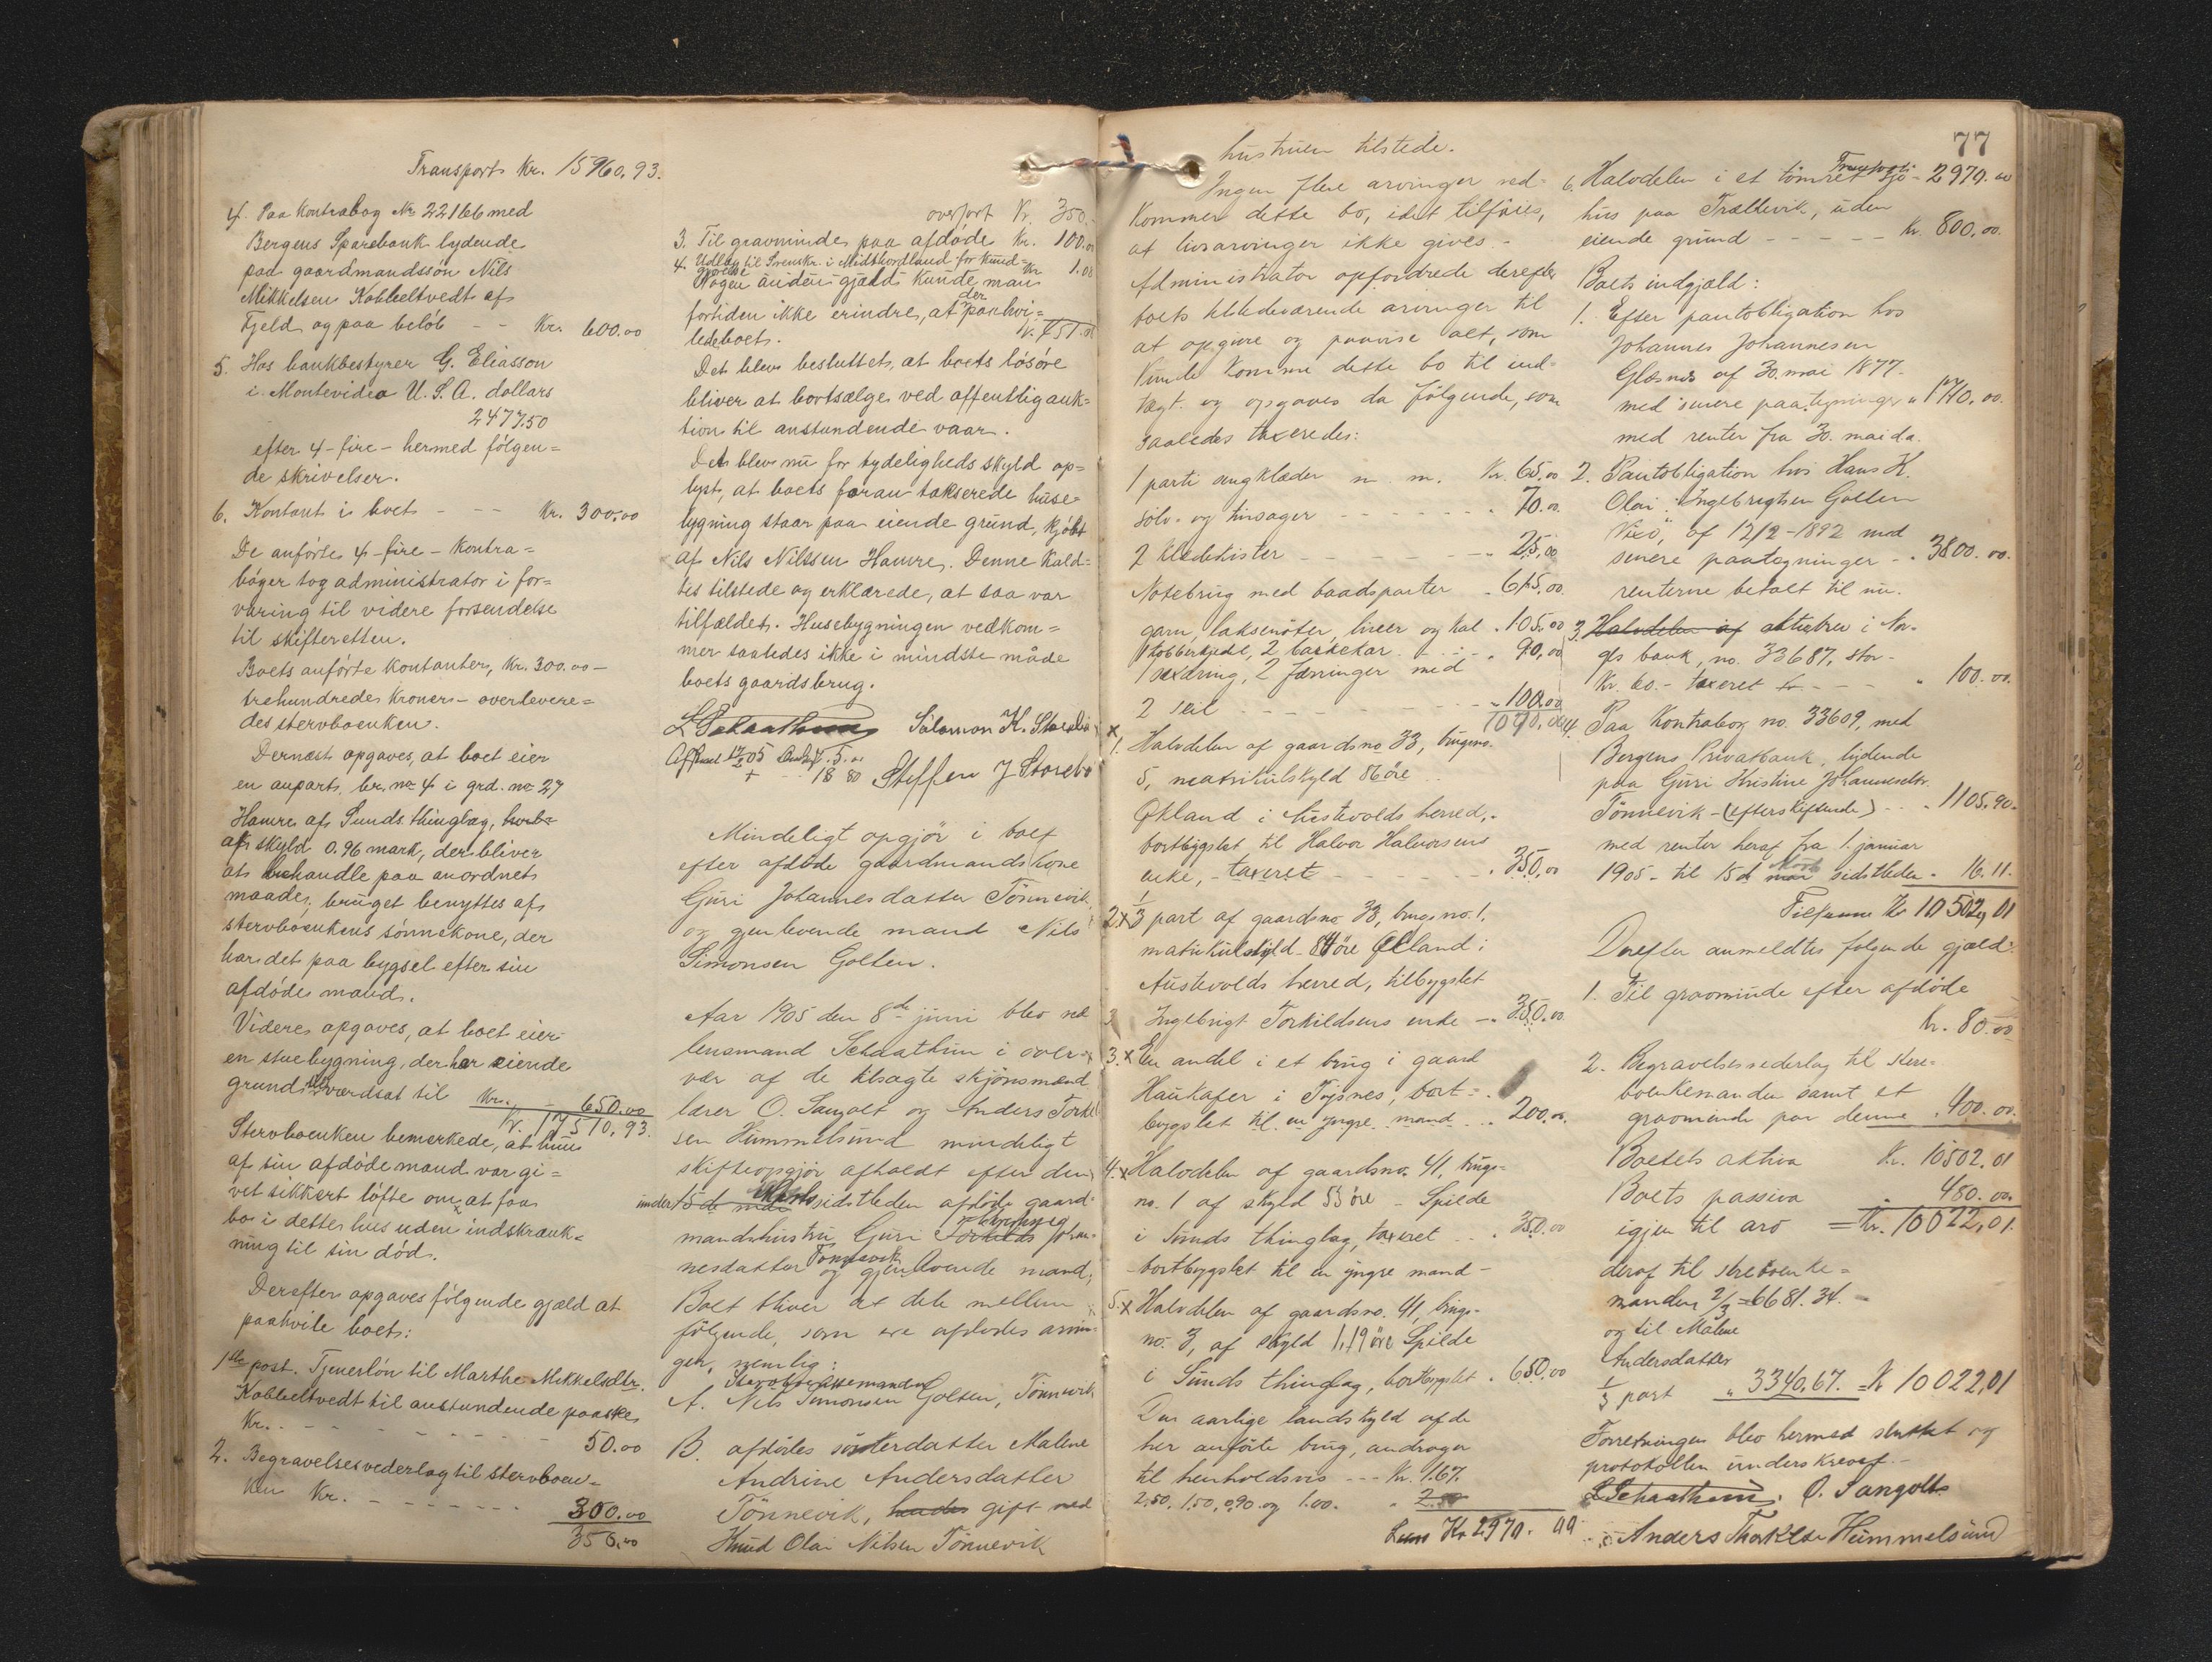 Transport Kr. 15960,93.
4. Paa Kontrabog No 22166 med
Bergens Sparebank lydende
paa gaardmandssøn Nils
Mikkelsen Kobbeltvedt af
Fjeld og paa beløb - - Kr. 600.00
5. Hos bankbestyrer G. Eliasson
i Montevideo U. S. A. dollars
2477.50
efter 4 - fire - hermed følgen=
de skrivelser.
6. Kontant i boet - - - Kr. 300,00
De anførte 4 - fire - Kontra=
bøger tog administrator i for=
varing til videre forsendelse
til skifteretten.
Boets anførte kontanter, Kr. 300.00 -
trehundrede Kroner - overlevere=
des stervboenken.
Dernæst opgaves, at boet eier
en anpart, br. no 4 i grd. no 27
Hamre af Sunds thinglag,
af skyld 0.96 mark, der bliver
at behandle paa anordnet
maade, bruget benyttes af
stervboenkens sønnekone, der
har det paa bygsel efter sin
afdøde mand.
Videre opgaves, at boet eier
en stuebygning, der har eiende
grund værdsat til Kr. - 650.00
Kr. 17510,93.
Stervboenken bemerkede, at hun
af sin afdøde mand var gi=
vet sikkert løfte om at faa
bo i dette hus uden indskrænk=
ning til sin død.
Derefter opgaves følgende gjæld at
paahvile boet:
1ste post. Tjenerløn til Marthe Mikkelsdtr.
Kobbeltvedt til anstundende paaske
Kr. - - - - - - 50.00
2. Begravelsesvederlag til stervboen=
ken Kr. - - - - - - 300.00
350,00
overført Kr. 350.
3. Til gravminde paa afdøde Kr. 100.00
4. Udlæg til Svenskr. i Midthordland for kund=
gjørelse Kr. 1.00
Nogen anden gjæld kunde man
fortiden ikke erindre, at der paahvi=
lede boet. Kr. 451.00
Det blev besluttet, at boets løsøre
bliver at bortsælge ved offentlig auk=
tion til anstundende vaar.
Det blev nu for tydeligheds skyld op=
lyst, at boets foran takserede huse=
bygning staar paa eiende grund, kjøbt
af Nils Nilssen Hamre. Denne kald=
tes tilstede og erklærede, at saa var
tilfældet. Husebygningen vedkom=
mer saaledes ikke i mindste måde
boets gaardsbrug.
L Schaathun Salomon K. Storebø
Steffen J Storebø
Mindeligt opgjør i boet
efter afdøde gaardmandskone
Guri Johannesdatter Tønnevik
og gjenlevende mand Nils
Simonsen Golten.
Aar 1905 den 8de juni blev ved
lensmand Schaathun i over=
vær af de tilsagte skjønsmænd
lærer O. Sangolt og Anders Torkel
sen Hummelsund mindeligt
skifteopgjør afholdt efter den
under 15de marts sidstleden afdøde gaard=
mandshustru Guri Kristine Johan=
nesdatter Tønnevik og gjenlevende mand,
Boet bliver at dele mellem
følgende, som ere afdødes arvin=
ger, nemlig:
Stervboenkemanden
A. Nils Simonsen Golten, Tønnevik
B. afdødes søsterdatter Malene
Andrine Andersdatter
Tønnevik, gift med
Knud Olai Nilsen Tønnevik
77
hustruen tilstede.
Ingen flere arvinger ved=
kommer dette bo, idet tilføies,
at livsarvinger ikke gives. -
Administrator opfordrede derefter
boets tilstedeværende arvinger til
at opgive og paavise alt, som
kunde komme dette bo til ind=
tægt og opgaves da følgende, som
saaledes taxeredes:
1 parti sengklæder m. m. Kr. 65.00
sølv- og tinsager - - - - - - " 70.00
2 klædekister - - - - - - " 25,00
Notebrug med baadsparter " 615,00
garn, laksenøter, liner og kal " 105.00
1 kobberkjedel, 2 baskekar - - - " 90,00
1 sexæring, 2 færinger med
2 seil - - - - - - " 100.00
1070.00
x 1. Halvdelen af gaardsno 33, brugsno.
5, matrikulskyld 86 øre
Økland i Austevolds herred,
bortbygslet til Halvor Halvorsens
enke, - taxeret - - - - - - " 350,00
2. x 1/3 part af gaardsno 33, brugsno. 1.
matrikulskyld 84 øre Økland i
Austevolds herred, tilbygslet
Ingebrigt Torkildsens enke - " 350.00
3. x En andel i et brug i gaard
Haukafer i Tysnes, bort=
bygslet til en yngre mand - - " 200,00
4. x Halvdelen af gaardsno. 41, brugs=
no. 1 af skyld 53 øre - Spilde
i Sunds thinglag, taxeret - - " 350.00
- bortbygslet til en yngre mand -
5. x Halvdelen af gaardsno. 41, brugs=
no. 3, af skyld 1,19 øre Spilde
i Sunds thinglag, bortbygslet " 650,00
Den aarlige landskyld af de
her anførte brug, andrager
til henholdsvis - - - Kr. 1.67.
2,50. 1.50, 0,90. og 1.00.
Kr 2970.
Transport - 2970.00
6. Halvdelen i et tømret sjø=
hus paa Trællevik, uden
eiende grund - - - - - Kr. 800.00
Boets indgjæld:
1. Efter pantobligation hos
Johannes Johannesen
Glæsnes af 30. mai 1877.
med senere paategninger " 1740.00.
med renter fra 30. mai da.
2. Pantobligation hos Hans K.
Olai Ingebrigtsen Golten
"Vixø", af 12/2 - 1892 med
senere paategninger - " 3800.00.
renterne betalt til nu.
3. Halvdelen af aktiebrev i Nor=
ges bank, no. 33687, stor
Kr. 60. - taxeret - - - " 100.00.
4. Paa Kontrabog no. 33609, med
Bergens Privatbank, lydende
paa Guri Kristine Johannesdtr.
Tønnevik - (efterskiftende) - - " 1105,90.
med renter heraf fra 1. januar
1905 - til 15d marts sidstleden - 16.11.
Tilsammen Kr 10502,01
Derefter anmeldtes følgende gjæld:
1. Til gravminde efter afdøde
Kr. 80.00
2. Begravelsesvederlag til sterv=
boenkemanden samt et
gravminde paa denne " 400.00.
Boets aktiva Kr. 10502.01
Boets passiva " 480.00.
igjen til arv = Kr. 10022,01.
deraf til stervboenke=
manden 2/3 = 6681.34. -
og til Malene
Andersdatter
1/3 part " 3340,67. = Kr 10022,01
Forretningen blev hermed sluttet og
protokollen underskrevet. -
L Schaathun. O. Sangolt
Anders Thorklsn Hummelsund